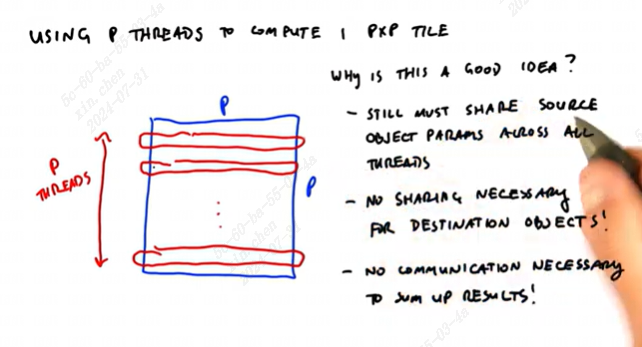 USING P THREADS TO COMPUTE 1 PXP TILE
WHY IS THIS A GOOD IDEA?
P
P
THREADS
P
- STILL MUST SHARE SOURCE
OBJECT PARAMS ACROSS ALL
THREADS
- NO SHARING NECESSARY
FOR DESTINATION OBJECTS!
- NO COMMUNICATION NECESSARY
TO SUM UP RESULTS!
xin.chen
2024-07-31